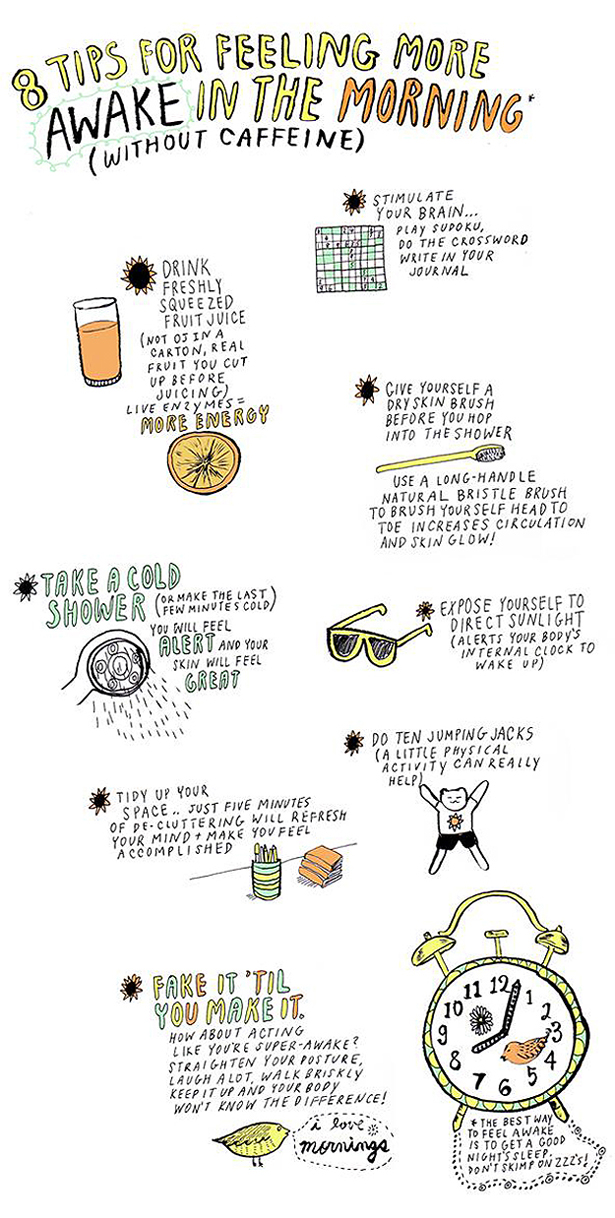 8 TIPS FOR FEELING MORE
AWAKE IN THE MORNING*
(WITHOUT CAFFEINE)
STIMULATE
YOUR BRAIN...
PLAY SUDOKU,
DO THE CROSSWORD
WRITE IN YOUR
JOURNAL
DRINK
FRESHLY
SQUEEZED
FRUIT JUICE
(NOT OJ IN A
CARTON, REAL
FRUIT YOU CUT
UP BEFORE
JUICING)
LIVE ENZYMES =
MORE ENERGY
GIVE YOURSELF A
DRY SKIN BRUSH
BEFORE YOU HOP
INTO THE SHOWER
USE A LONG-HANDLE
NATURAL BRISTLE BRUSH
TO BRUSH YOURSELF HEAD TO
TOE INCREASES CIRCULATION
AND SKIN GLOW!
TAKE A COLD
SHOWER (OR MAKE THE LAST
FEW MINUTES COLD)
YOU WILL FEEL
ALERT AND YOUR
SKIN WILL FEEL
GREAT
EXPOSE YOURSELF TO
DIRECT SUNLIGHT
(ALERTS YOUR BODY'S
INTERNAL CLOCK TO
WAKE UP)
DO TEN JUMPING JACKS
(A LITTLE PHYSICAL
ACTIVITY CAN REALLY
HELP)
TIDY UP YOUR
SPACE.. JUST FIVE MINUTES
OF DE-CLUTTERING WILL REFRESH
YOUR MIND + MAKE YOU FEEL
ACCOMPLISHED
FAKE IT 'TIL
YOU MAKE IT.
HOW ABOUT ACTING
LIKE YOU'RE SUPER-AWAKE?
STRAIGHTEN YOUR POSTURE,
LAUGH A LOT, WALK BRISKLY
KEEP IT UP AND YOUR BODY
WON'T KNOW THE DIFFERENCE!
i love
mornings
12 1 2 3 4 5 6 7 8 9 10 11
*THE BEST WAY
TO FEEL AWAKE
IS TO GET A GOOD
NIGHT'S SLEEP.
DON'T SKIMP ON ZZZ'S!